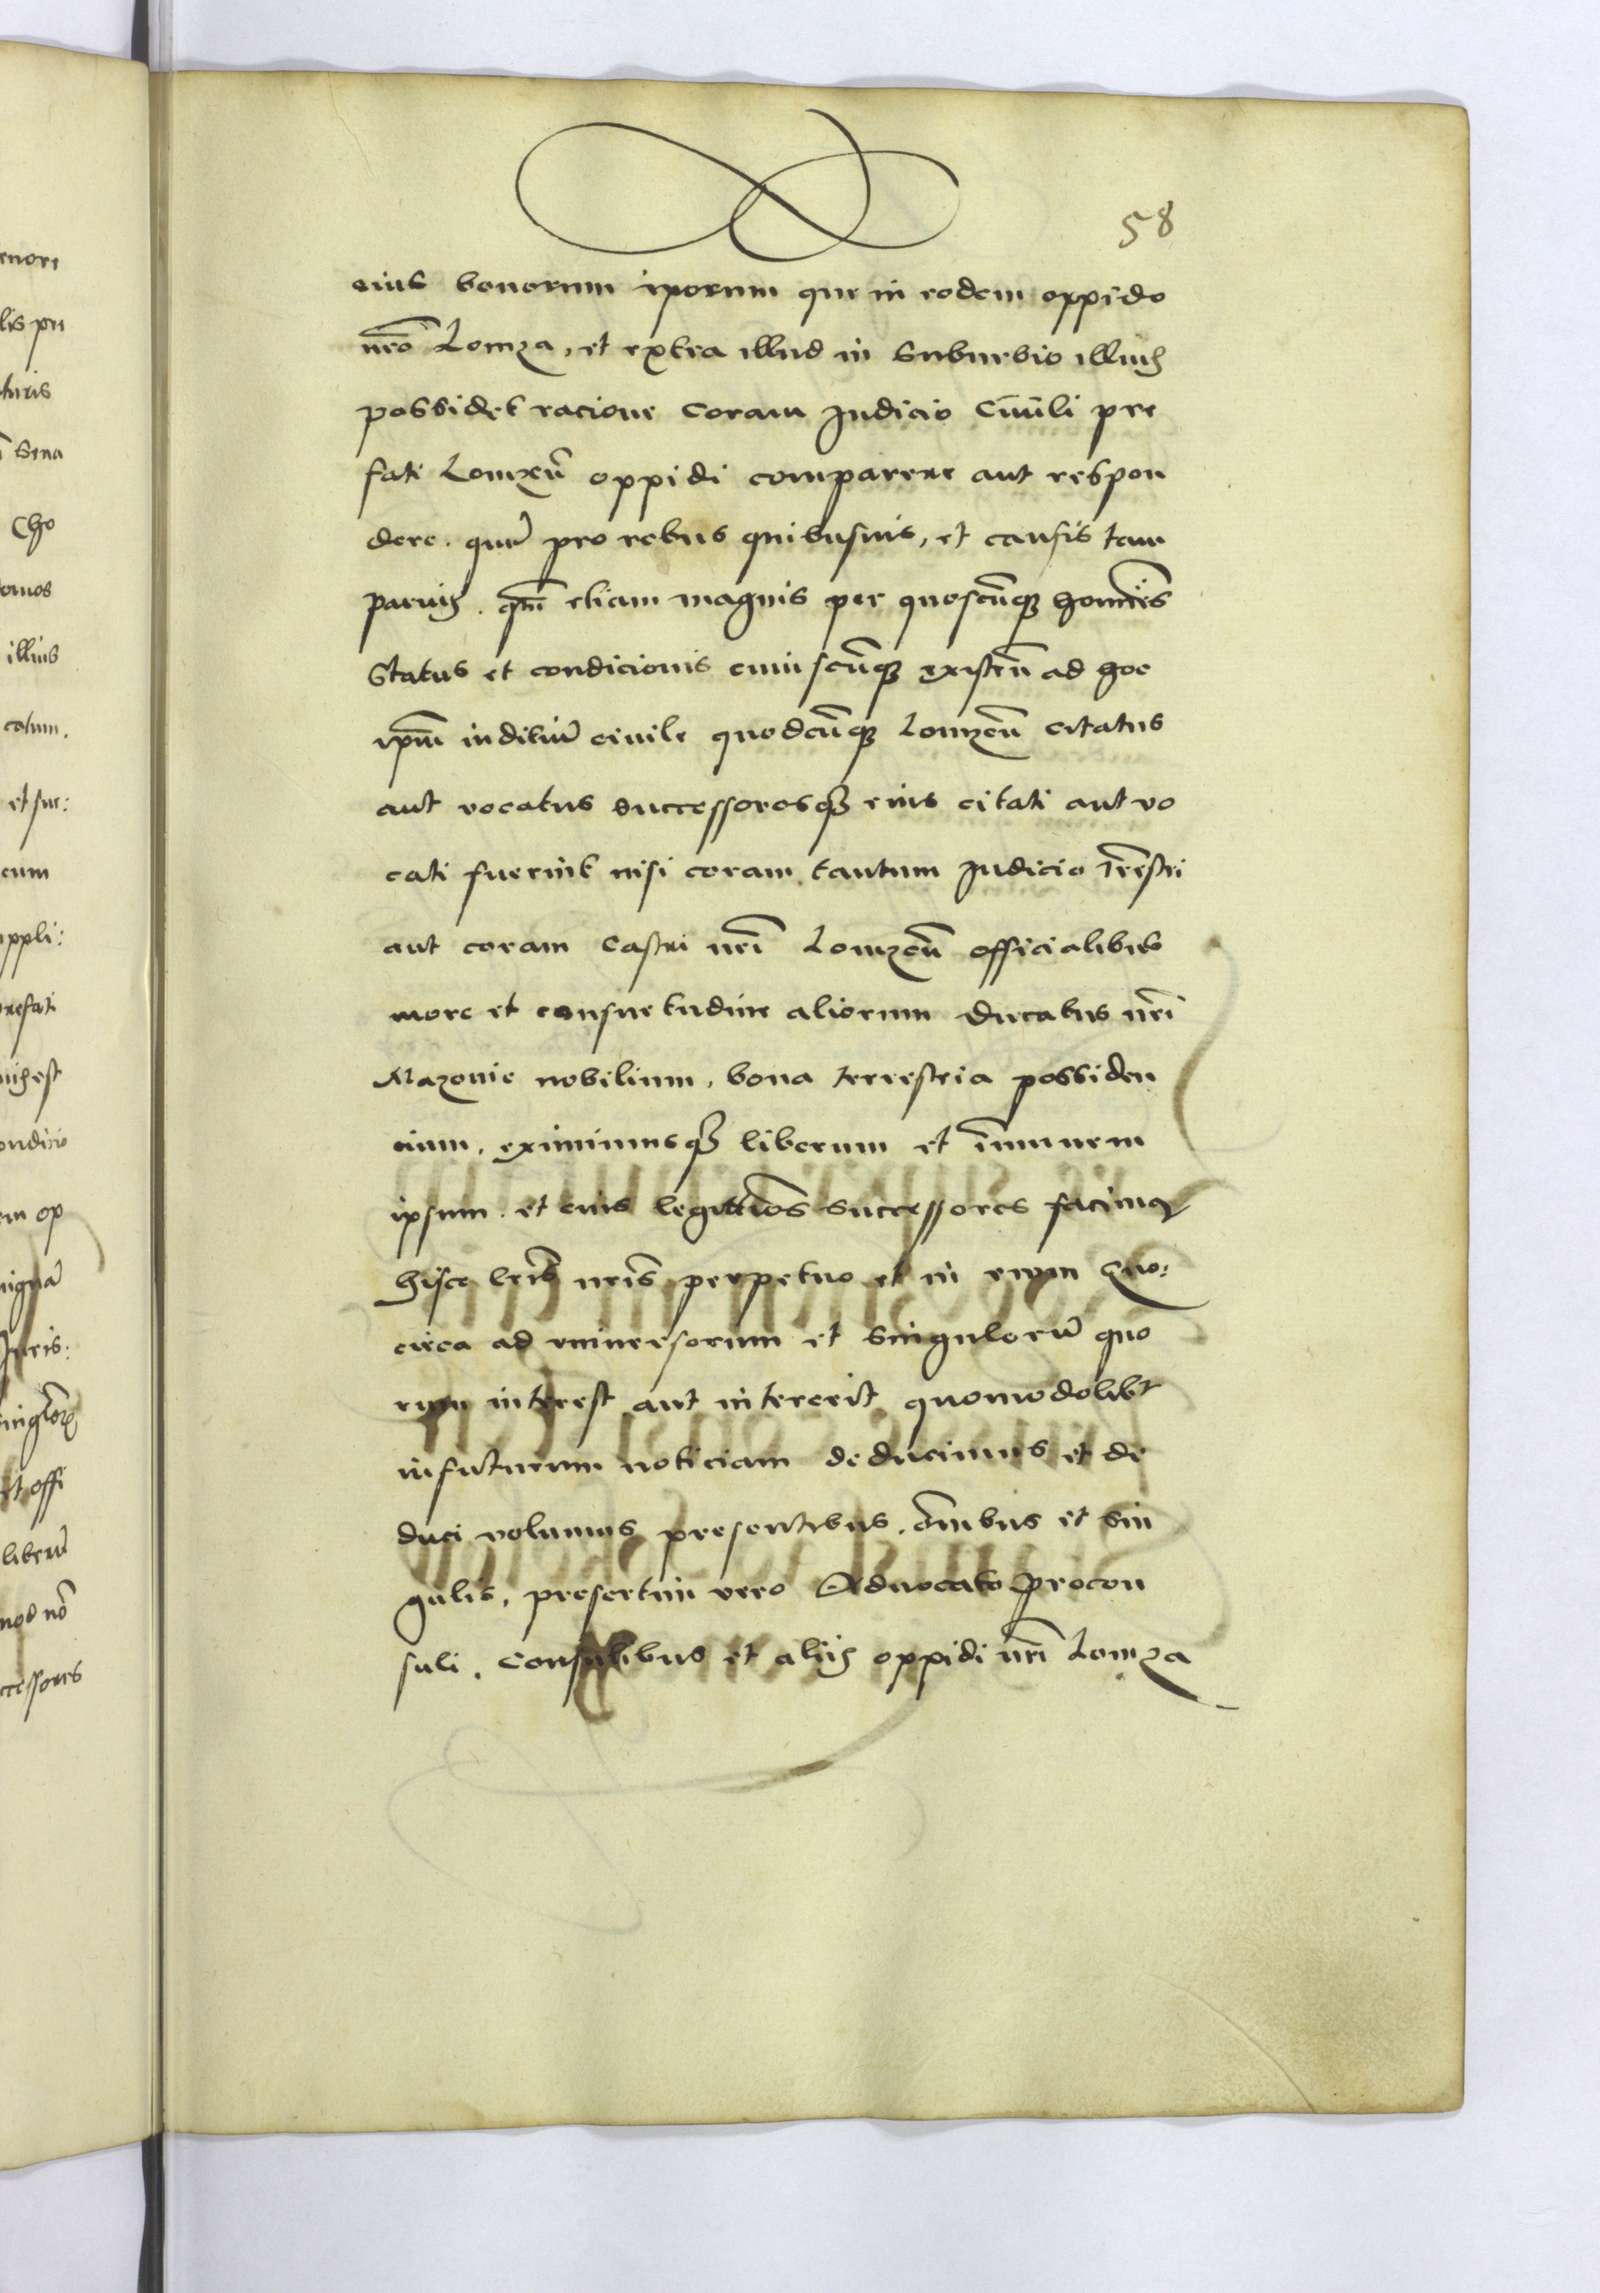 58
eius bonorum ip̄orum que in eodem oppido
nr̄o Lomza, et extra illud in suburbio illius
possidet racione coram Iudicio Ciuili pre
fati Lomzeñ oppidi comparere aut respon
dere. quin̄ pro rebus quibusuis, et causis tam
paruis. qm̄ etiam magnis per quoscūque homīes
status et condicionis cuiuscūque existeñ ad hoc
ip̄m iudiciū ciuile quodcūque Lomzeñ citatus
aut vocatus successoresque eius citati aut vo
cati fuerint nisi coram tantum Iudicio Tr̄estri
aut coram castri nr̄i Lomzeñ officialibus
more et consuetudine aliorum ducatus nr̄i
Mazouie nobilium, bona terrestria possiden
cium, eximimusque liberum et īmunem
ipsum. et eius legittīos successores facimus
hisce lr̄is nr̄is perpetuo et in ewm Quo:
circa ad vniuersorum et singulorū quo
rum interest aut intererit quomodolibet
in futurum noticiam deducimus et de
duci volumus presentibus. ōmibus et sin
gulis, presertim vero Aduocato procon
suli, consulibus et aliis oppidi nr̄i Lomza
enore
lis pu
turis
Cho
omos
illius
catum.
et suc:
cum
uppli:
refati
ondicio
em op
Iuris:
et offi
liberū
uod nō
ccessores